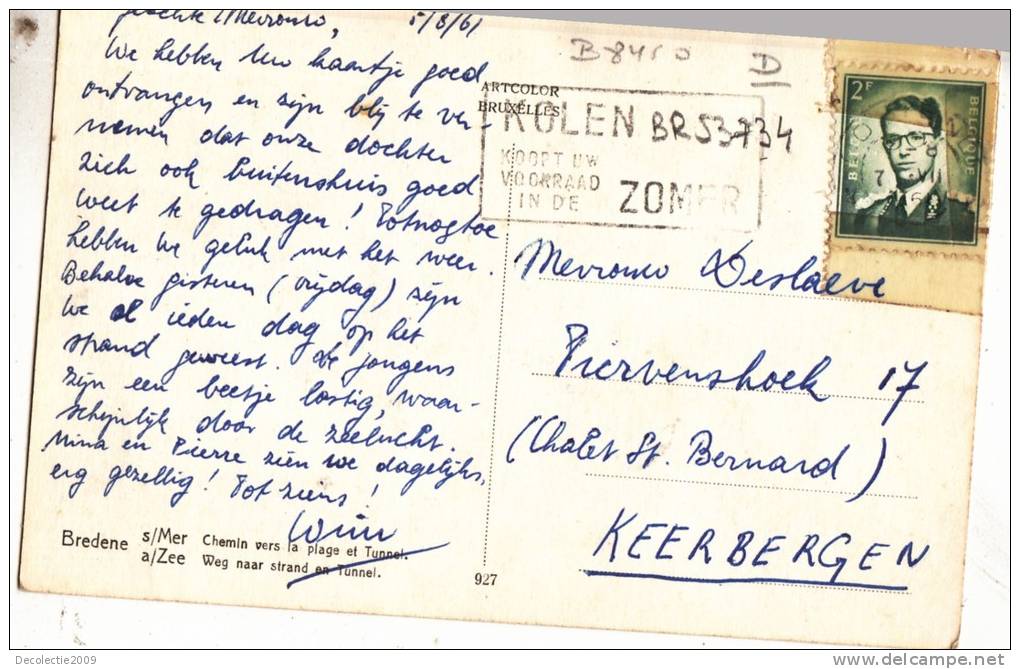 geachte Mevrouw, 5/8/61
We hebben Uw kaartje goed
ontvangen, en zijn blij te ver-
nemen dat onze dochter
zich ook buitenshuis goed
weet te gedragen! Totnogtoe
hebben we geluk met het weer.
Behalve gisteren (vrijdag) zijn
we ieden dag op het
strand geweest. De jongens
zijn een beetje lastig, waar-
schijnlijk door de zeelucht.
Nina en Pierre zien we dagelijks,
erg gezellig! Tot ziens!
Wim
Bredene s/Mer Chemin vers la plage et Tunnel.
a/Zee Weg naar strand en Tunnel.
927
ARTCOLOR
BRUXELLES
B-8450
D
KOLEN
KOOPT UW
VOORRAAD
IN DE ZOMER
BR53734
2F
BELGIE
BELGIQUE
Mevrouw Deslaeve
Piervenshoek 17
(Chalet St. Bernard)
KEERBERGEN
Decolectie2009
delcampe.net